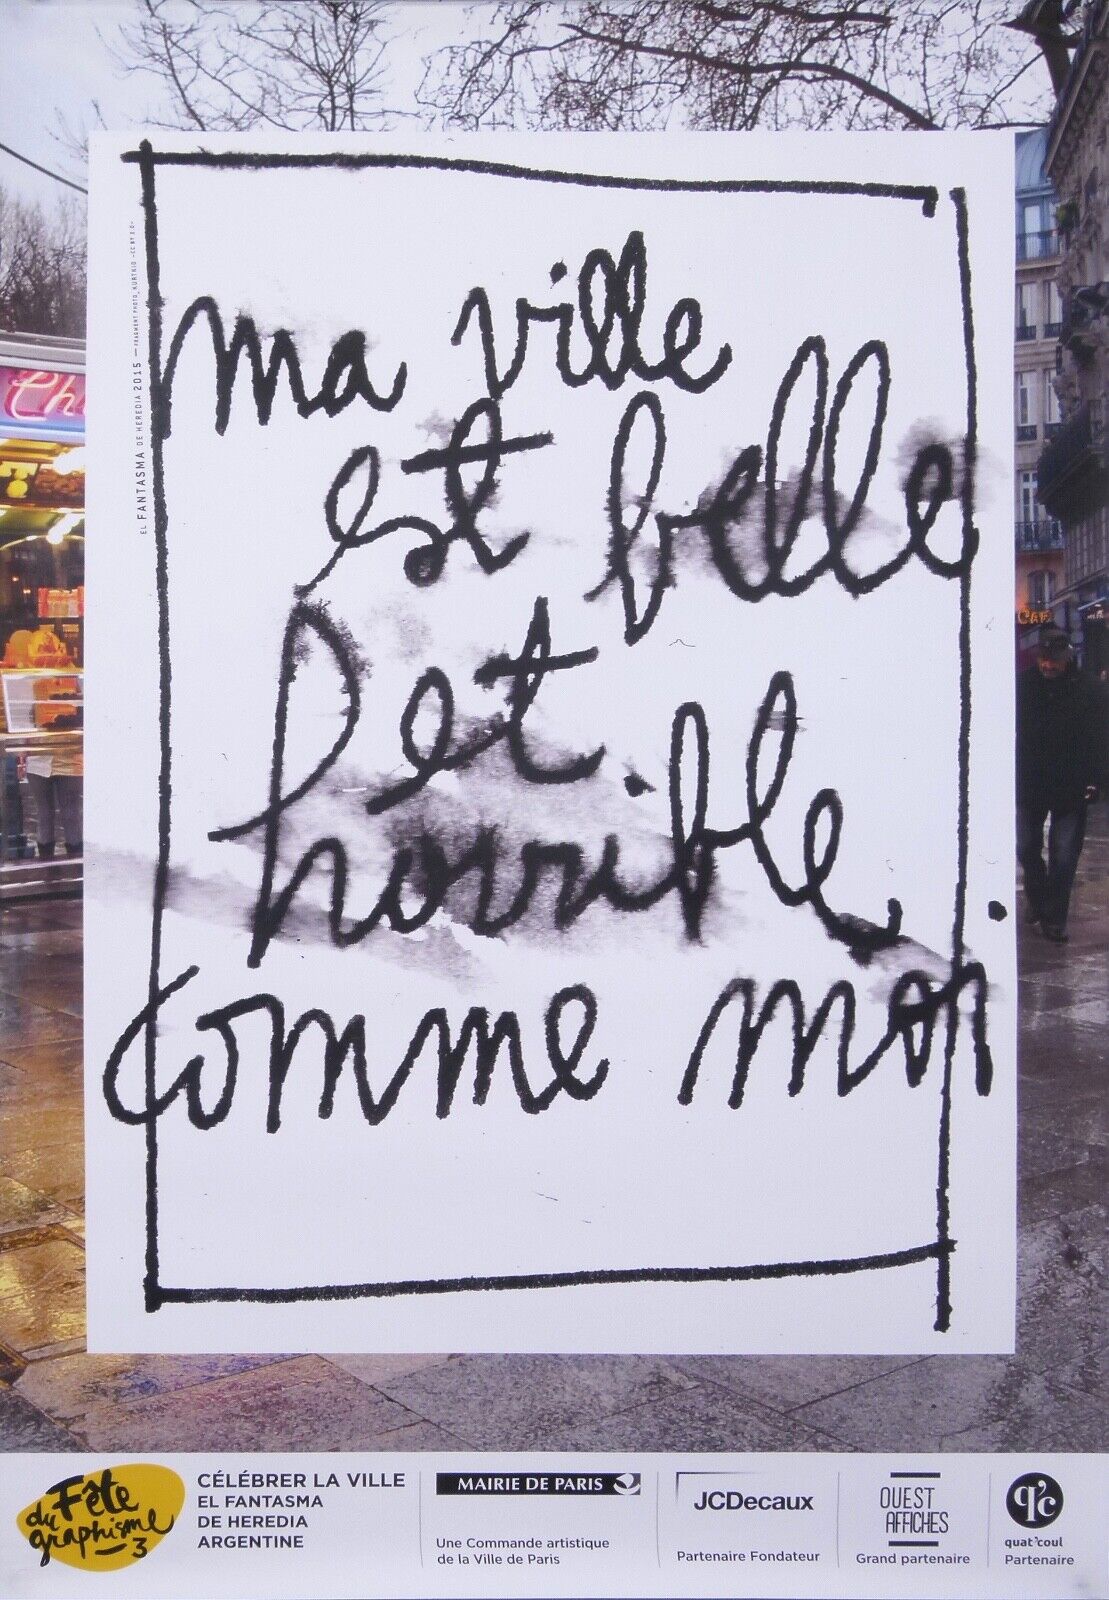 ma ville
est belle
et
horrible
comme moi.
EL FANTASMA DE HEREDIA 2015 — FRAGMENT PHOTO, KURTXIO -CC BY 2.0-
Ch
CAFE
Fête
du
graphisme
3
CÉLÉBRER LA VILLE
EL FANTASMA
DE HEREDIA
ARGENTINE
MAIRIE DE PARIS
Une Commande artistique
de la Ville de Paris
JCDecaux
Partenaire Fondateur
OUEST
AFFICHES
Grand partenaire
q'c
quat'coul
Partenaire